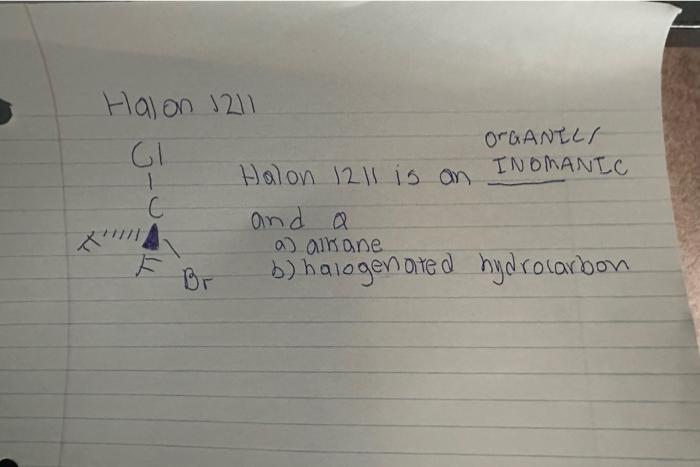 Halon 1211
Cl
C
F
F
Br
ORGANIC/
INORGANIC
Halon 1211 is an
and a
a) alkane
b) halogenated hydrocarbon